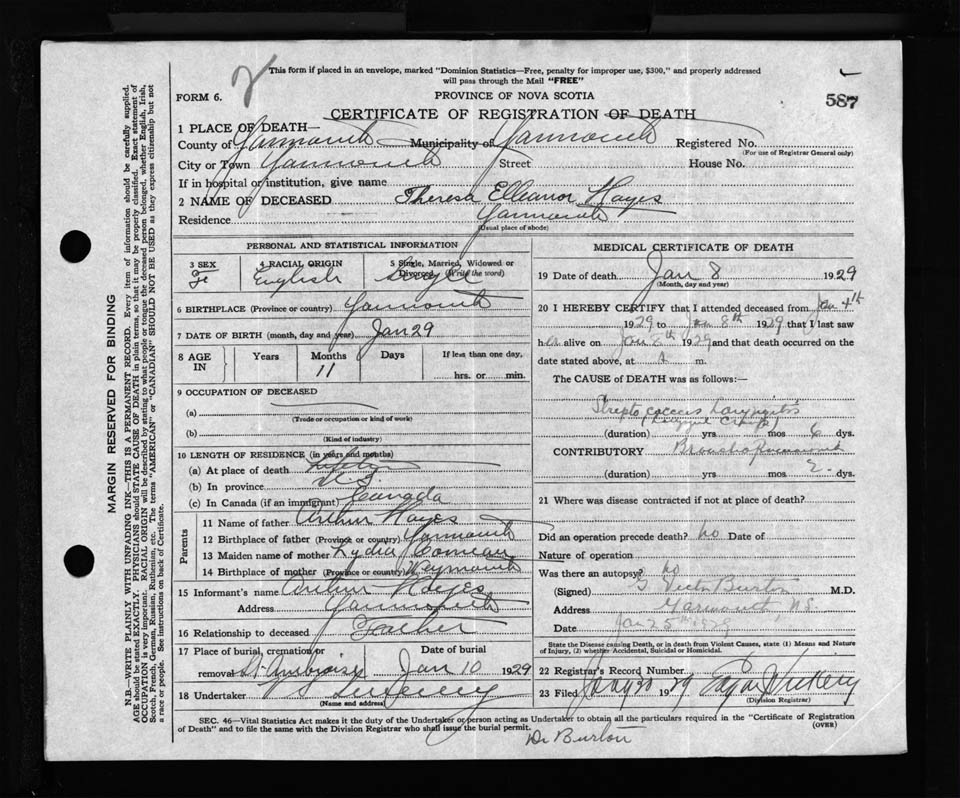 This form if placed in an envelope, marked "Dominion Statistics—Free, penalty for improper use, $300," and properly addressed
will pass through the Mail "FREE"
FORM 6.
PROVINCE OF NOVA SCOTIA
587
CERTIFICATE OF REGISTRATION OF DEATH
1 PLACE OF DEATH—
County of Yarmouth Municipality of Yarmouth Registered No.
(For use of Registrar General only)
City or Town Yarmouth Street House No.
If in hospital or institution, give name
2 NAME OF DECEASED Theresa Elleanor Hayes
Residence Yarmouth
(Usual place of abode)
PERSONAL AND STATISTICAL INFORMATION
3 SEX 4 RACIAL ORIGIN 5 Single, Married, Widowed or
Divorced (Write the word)
Fe English Single
6 BIRTHPLACE (Province or country) Yarmouth
7 DATE OF BIRTH (month, day and year) Jan 29
8 AGE IN Years Months Days If less than one day,
11 hrs. or min.
9 OCCUPATION OF DECEASED
(a)
(Trade or occupation or kind of work)
(b)
(Kind of industry)
10 LENGTH OF RESIDENCE (in years and months)
(a) At place of death
(b) In province N.S.
(c) In Canada (if an immigrant) Canada
Parents
11 Name of father Arthur Hayes
12 Birthplace of father (Province or country) Yarmouth
13 Maiden name of mother Lydia Comeau
14 Birthplace of mother (Province or country) Weymouth
15 Informant's name Arthur Hayes
Address Yarmouth
16 Relationship to deceased Father
17 Place of burial, cremation or removal Date of burial
St Ambroise Jan 10 1929
18 Undertaker
(Name and address)
MEDICAL CERTIFICATE OF DEATH
19 Date of death Jan 8 1929
(Month, day and year)
20 I HEREBY CERTIFY that I attended deceased from Jan 4th
1929 to Jan 8th 1929 that I last saw
h er alive on Jan 8th 1929 and that death occurred on the
date stated above, at m.
The CAUSE OF DEATH was as follows:—
Streptococcus Laryngitis
(duration) yrs mos 6 dys.
CONTRIBUTORY Broncho Pneumonia
(duration) yrs mos 2 dys.
21 Where was disease contracted if not at place of death?
Did an operation precede death? no Date of
Nature of operation
Was there an autopsy? no
(Signed) G Victor Burton M.D.
Address Yarmouth, N.S.
Date Jan 25th 1929
State the Disease causing Death, or in death from Violent Causes, state (1) Means and Nature
of Injury, (2) whether Accidental, Suicidal or Homicidal.
22 Registrar's Record Number
23 Filed 1929
(Division Registrar)
SEC. 46—Vital Statistics Act makes it the duty of the Undertaker or person acting as Undertaker to obtain all the particulars required in the "Certificate of Registration
of Death" and to file the same with the Division Registrar who shall issue the burial permit. (OVER)
Dr Burton
MARGIN RESERVED FOR BINDING
N.B.—WRITE PLAINLY WITH UNFADING INK—THIS IS A PERMANENT RECORD. Every item of information should be carefully supplied.
AGE should be stated EXACTLY. PHYSICIANS should STATE CAUSE OF DEATH in plain terms, so that it may be properly classified. Exact statement of
OCCUPATION is very important. RACIAL ORIGIN will be described by stating to what people or tongue the deceased person belonged, whether English, Irish,
Scotch, French, German, Russian, Ruthenian, etc. The terms "AMERICAN" or "CANADIAN" SHOULD NOT BE USED as they express citizenship but not
a race or people. See instructions on back of Certificate.